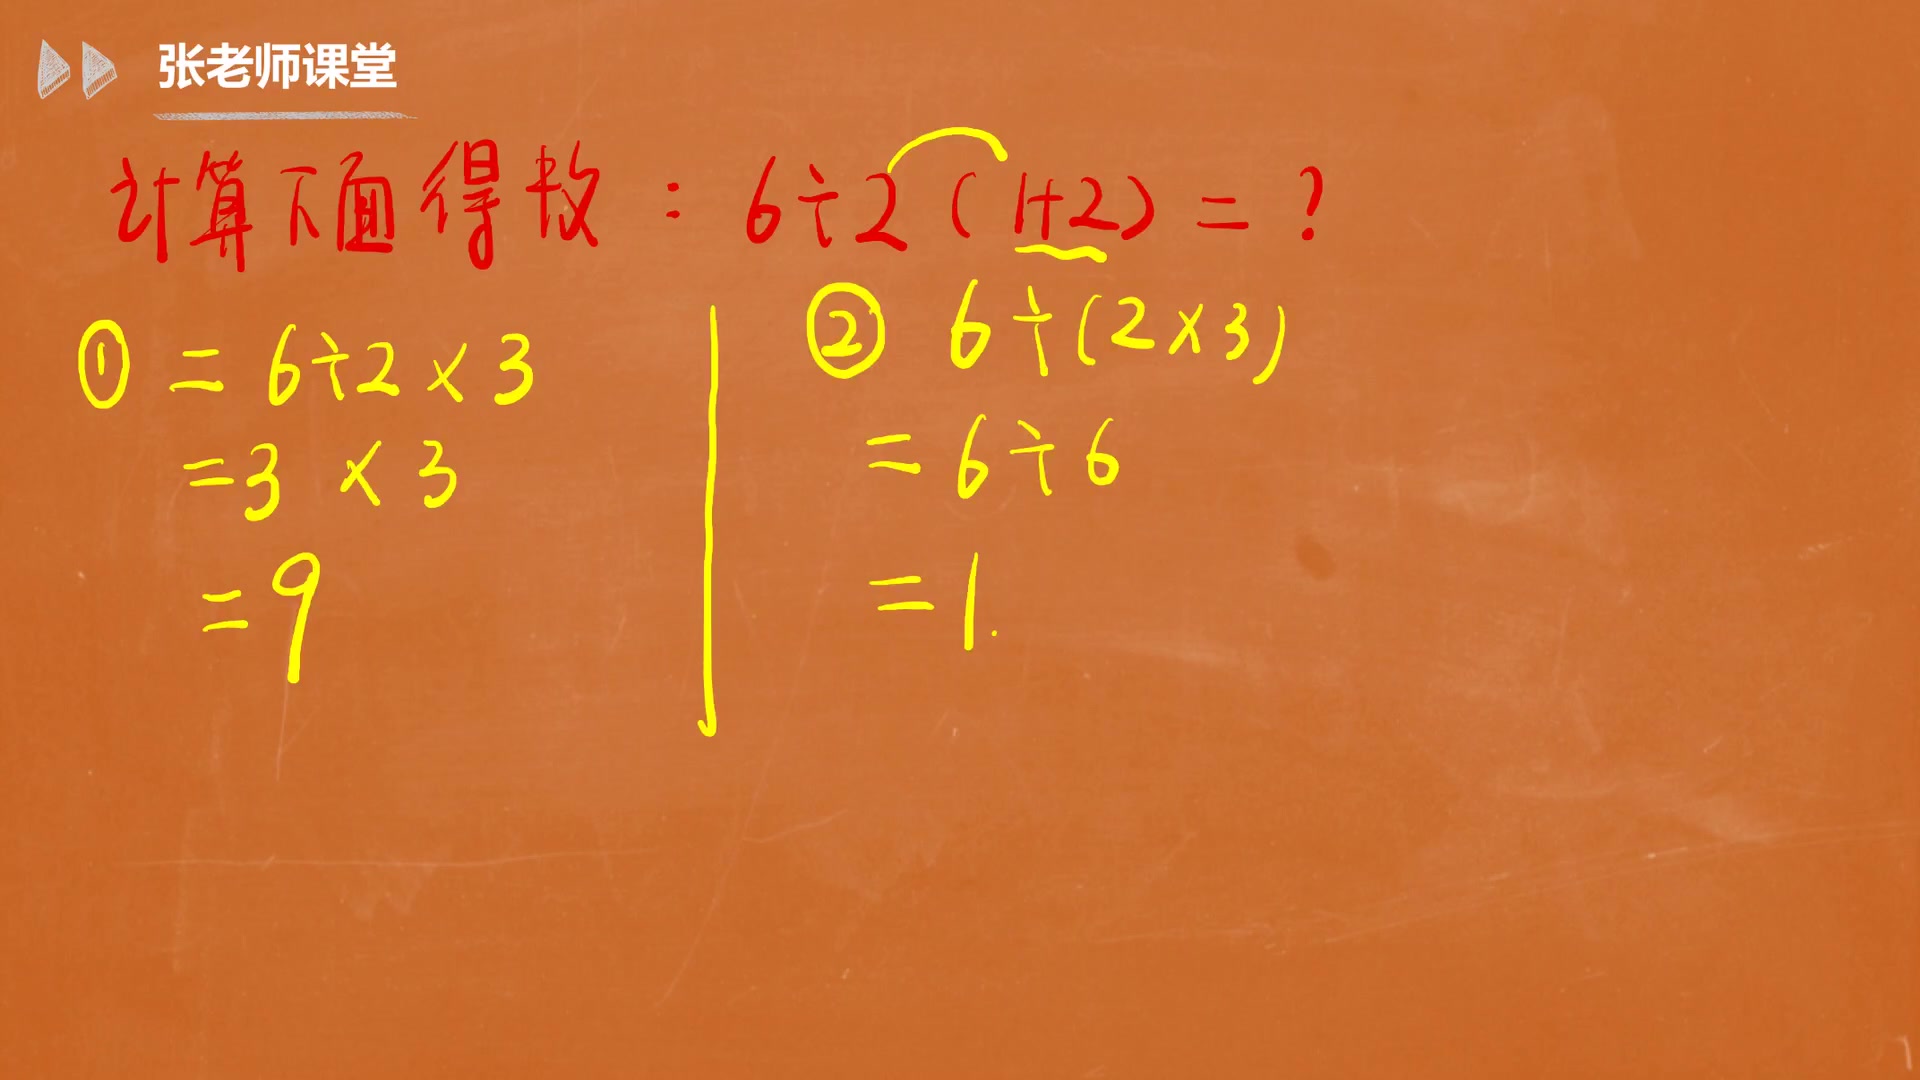 张老师课堂
计算下面得数：6÷2(1+2)=?
① =6÷2×3
=3×3
=9
② 6÷(2×3)
=6÷6
=1.